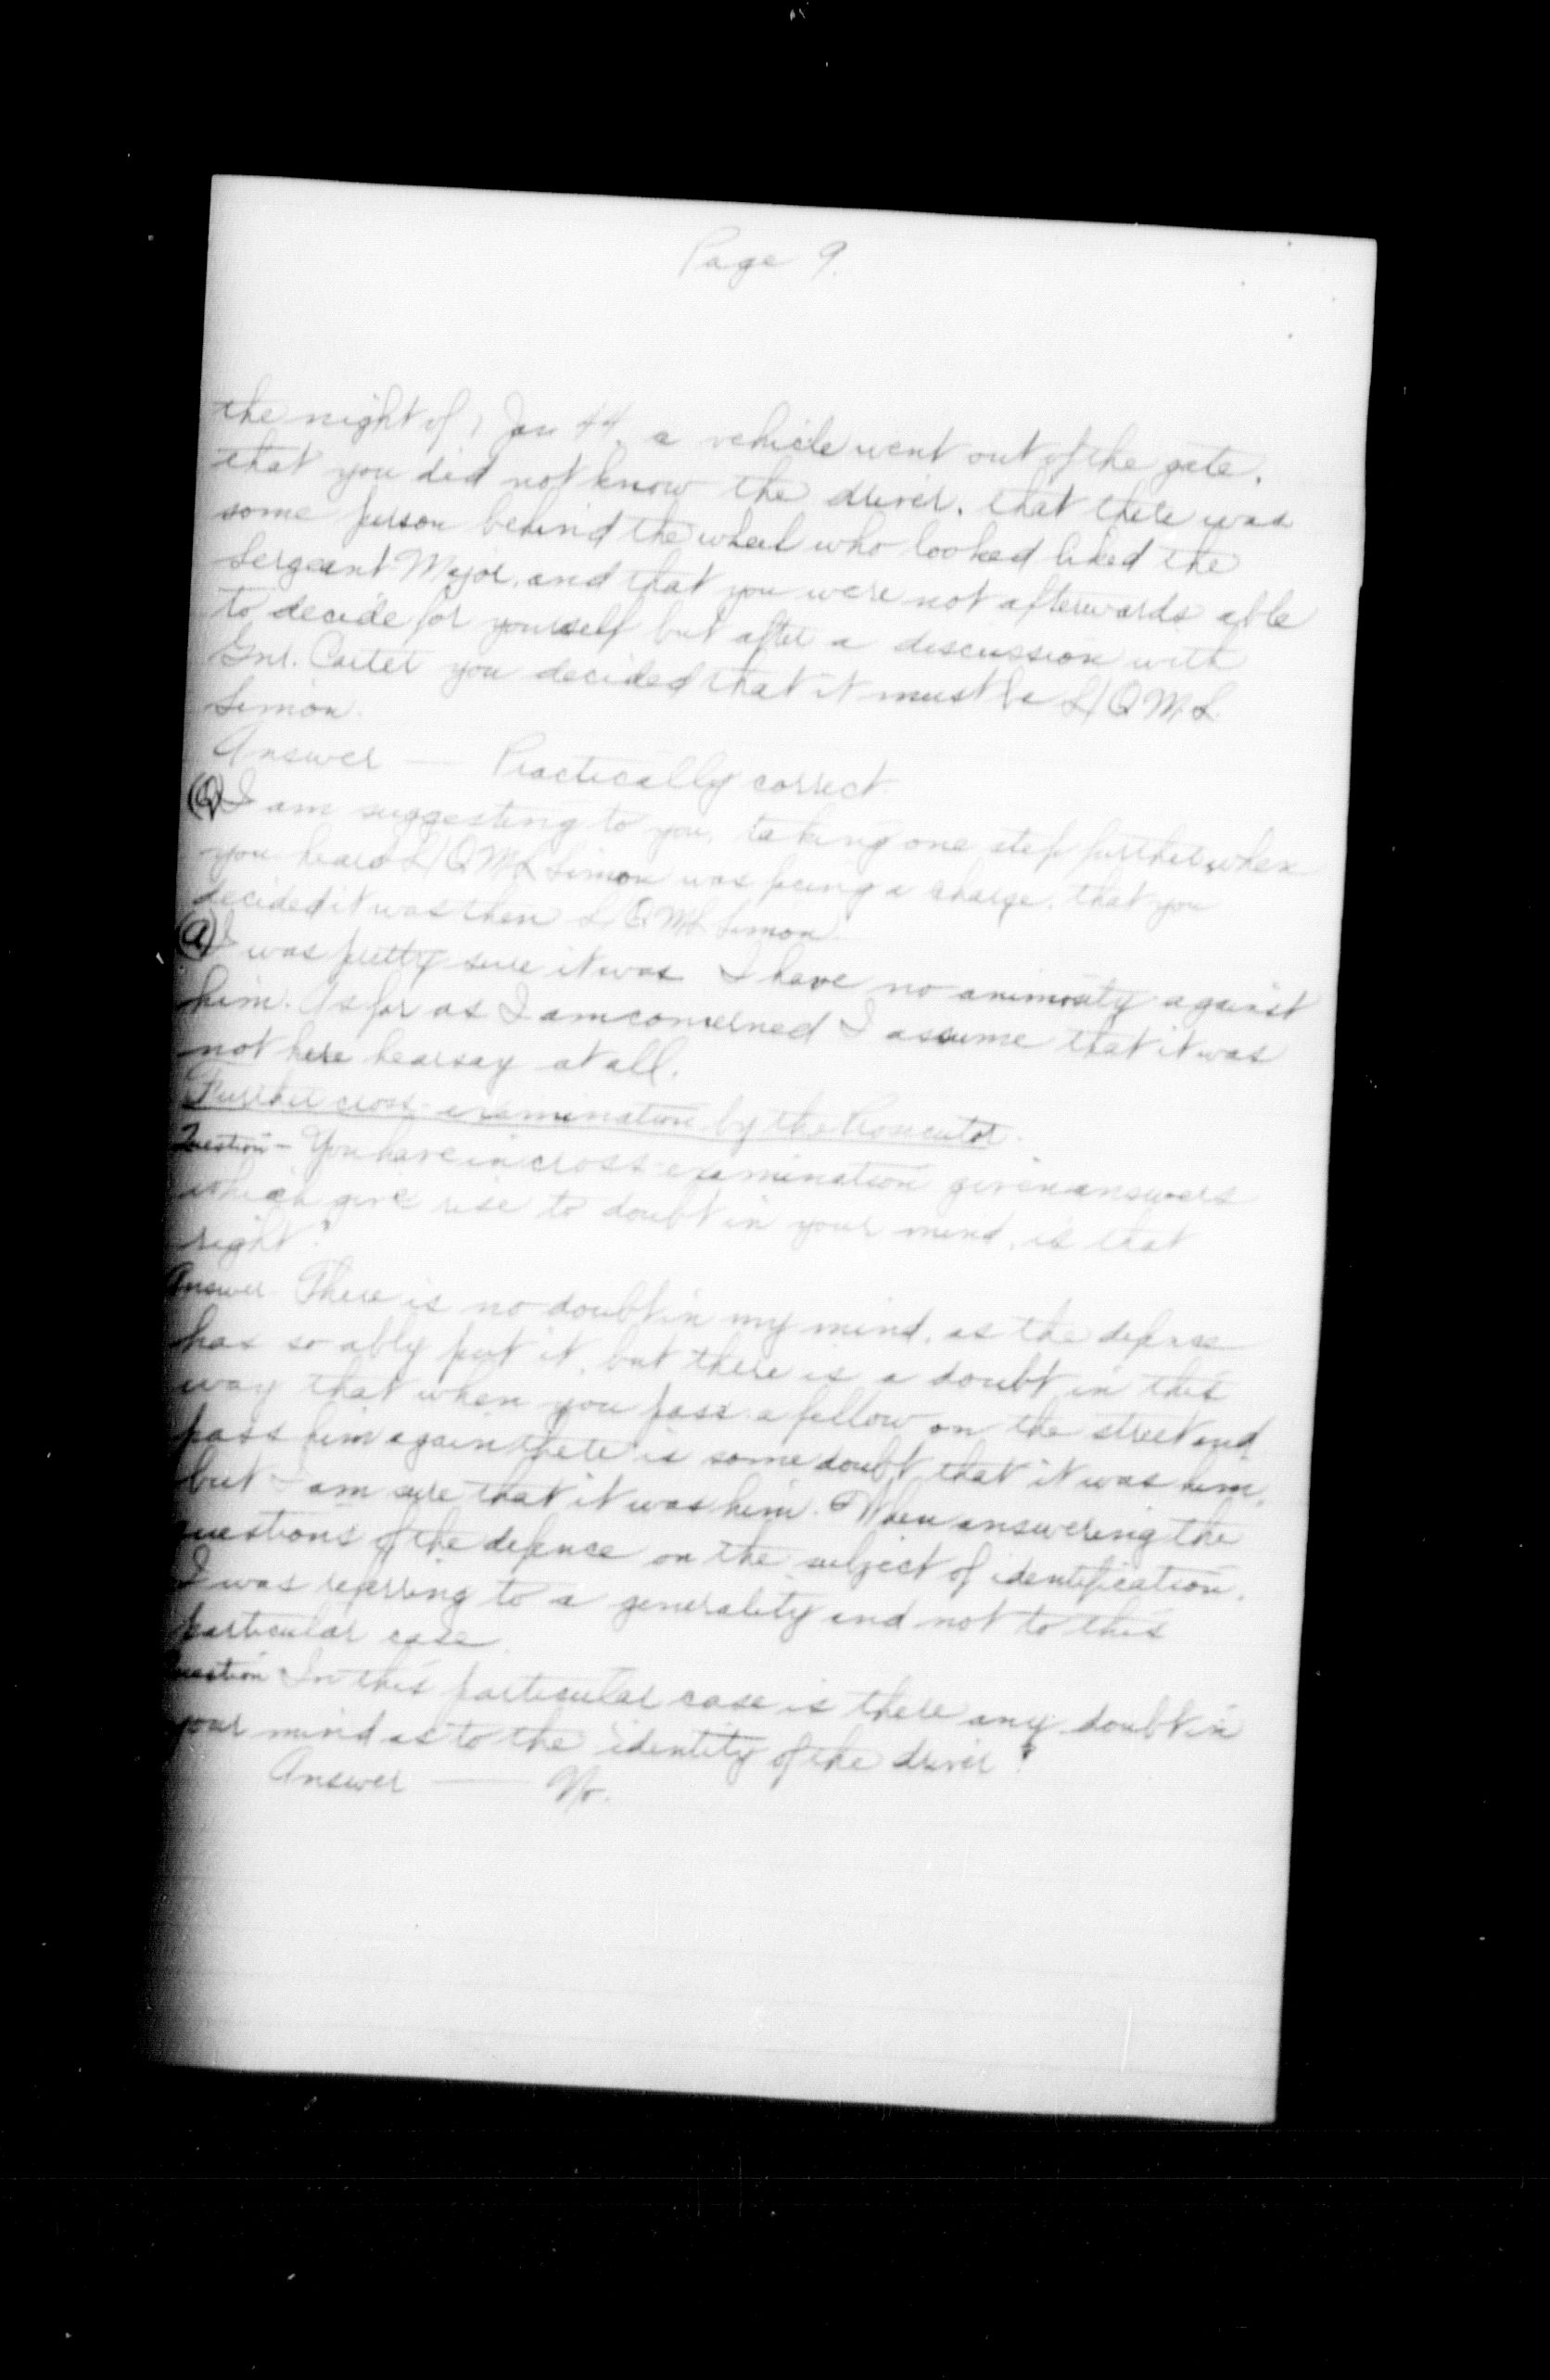 Page 9.
the night of 1 Jan 44, a vehicle went out of the gate,
that you did not know the driver, that there was
some person behind the wheel who looked liked the
Sergeant Major, and that you were not afterwards able
to decide for yourself but after a discussion with
Gnr. Carter you decided that it must be L/QMS
Simon.
Answer — Practically correct.
(Q) I am suggesting to you, taking one step further, when
you heard L/QMS Simon was facing a charge, that you
decided it was then L/QMS Simon.
(A) I was pretty sure it was. I have no animosity against
him. As far as I am concerned I assume that it was
not here hearsay at all.
Further cross-examination by the Prosecutor.
Question - You have in cross-examination given answers
which give rise to doubt in your mind, is that
right?
Answer - There is no doubt in my mind, as the defense
has so ably put it, but there is a doubt in this
way that when you pass a fellow on the street and
pass him again there is some doubt that it was him,
but I am sure that it was him. When answering the
questions of the defence on the subject of identification,
I was referring to a generality and not to this
particular case.
Question In this particular case is there any doubt in
your mind as to the identity of the driver?
Answer — No.